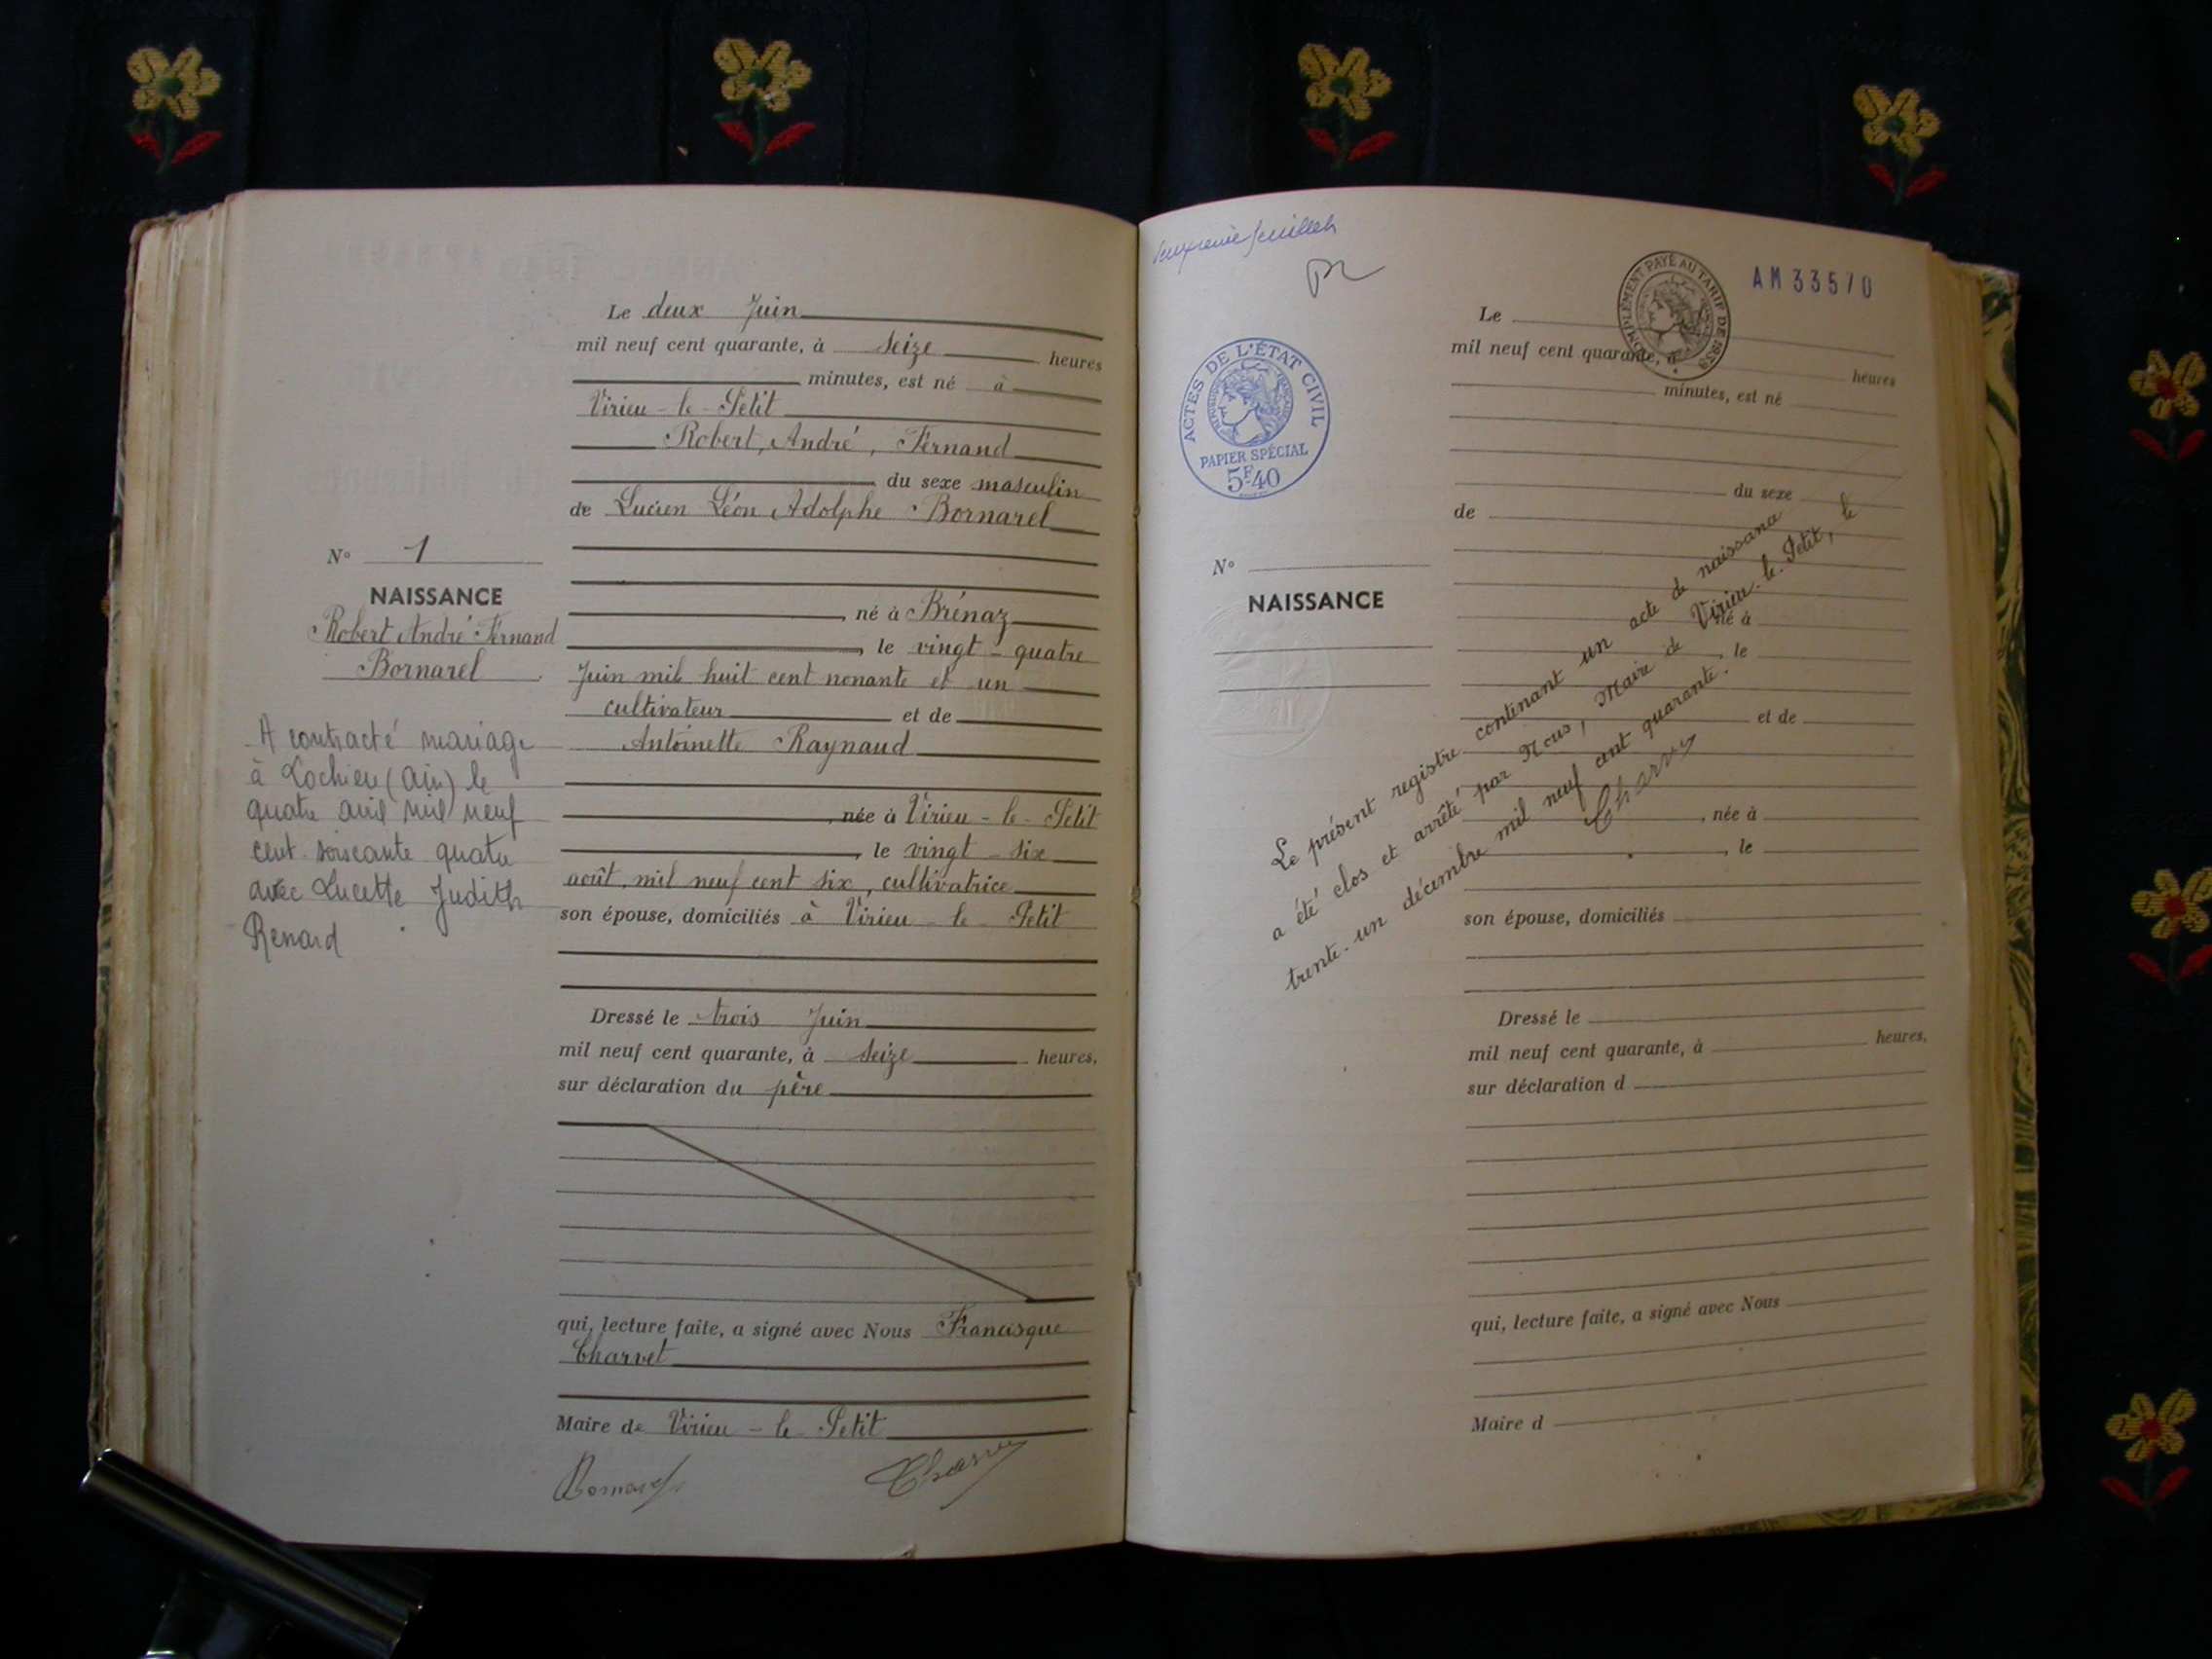 Le deux Juin
mil neuf cent quarante, à seize heures
minutes, est né à
Virieu-le-Petit
Robert, André, Fernand
du sexe masculin
de Lucien Léon Adolphe Bornarel
né à Brénaz
, le vingt-quatre
Juin mil huit cent nonante et un
cultivateur et de
Antoinette Raynaud
, née à Virieu-le-Petit
, le vingt-six
août, mil neuf cent six, cultivatrice
son épouse, domiciliés à Virieu-le-Petit
Dressé le trois Juin
mil neuf cent quarante, à seize heures,
sur déclaration du père
qui, lecture faite, a signé avec Nous Francisque
Charvet
Maire de Virieu-le-Petit
Bornarel
Charvet
N° 1
NAISSANCE
Robert André Fernand
Bornarel
A contracté mariage
à Lochieu (Ain) le
quatre avril mil neuf
cent soixante quatre
avec Lucette Judith
Renard
feuillet
COMPLÉMENT PAYÉ AU TARIF DE 1938
AM 33570
ACTES DE L'ÉTAT CIVIL
PAPIER SPÉCIAL
5F40
N°
NAISSANCE
Le
mil neuf cent quarante, à heures
minutes, est né
du sexe
de
né à
, le
et de
, née à
, le
son épouse, domiciliés
Dressé le
mil neuf cent quarante, à heures,
sur déclaration d
qui, lecture faite, a signé avec Nous
Maire d
Le présent registre contenant un acte de naissance
a été clos et arrêté par Nous, Maire de Virieu-le-Petit, le
trente-un décembre mil neuf cent quarante.
Charvet